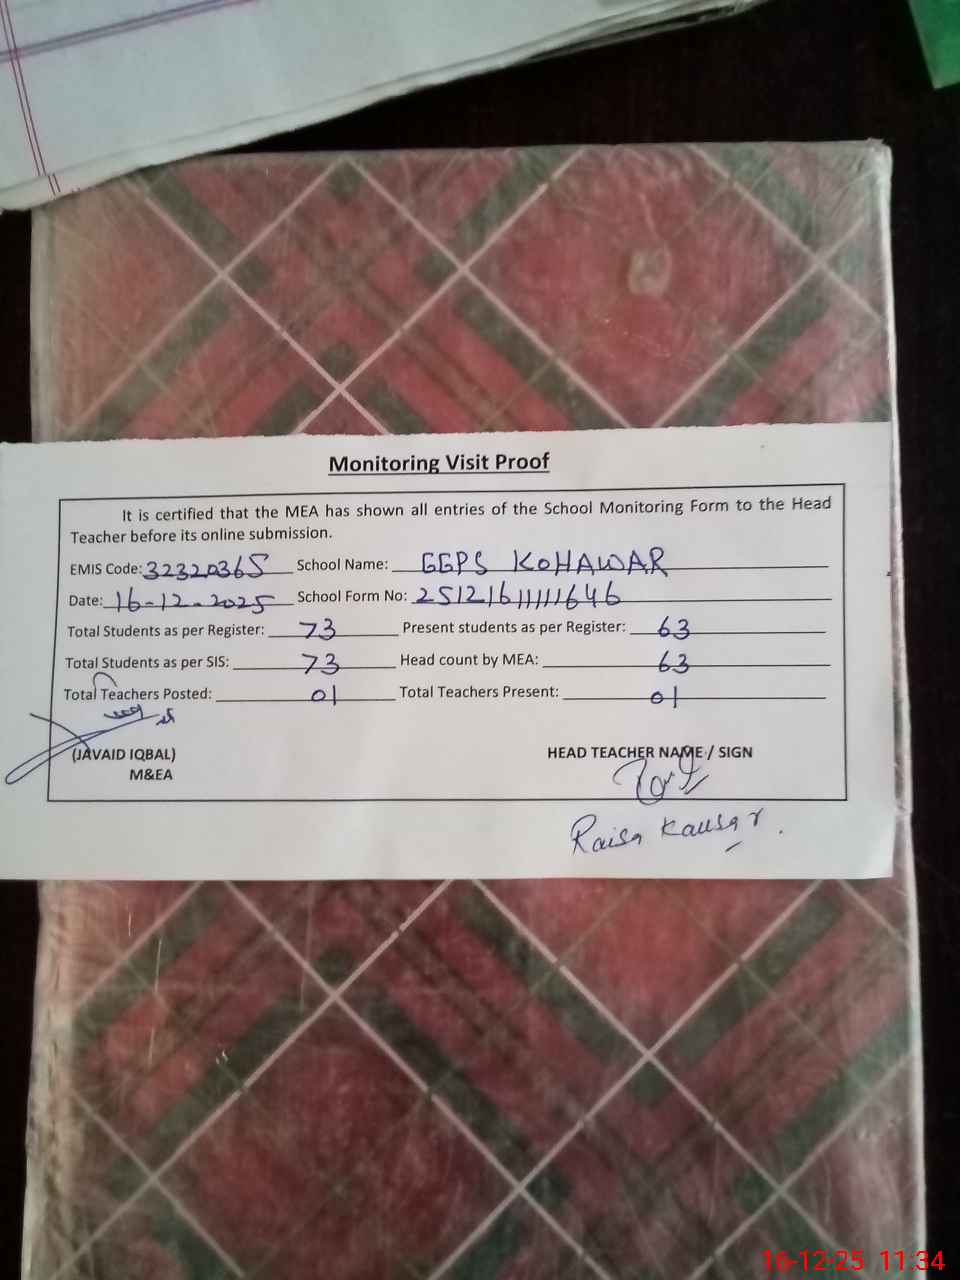 Monitoring Visit Proof
It is certified that the MEA has shown all entries of the School Monitoring Form to the Head
Teacher before its online submission.
EMIS Code: 32320365 School Name: GGPS KOHAWAR
Date: 16-12-2025 School Form No: 251216111111646
Total Students as per Register: 73 Present students as per Register: 63
Total Students as per SIS: 73 Head count by MEA: 63
Total Teachers Posted: 01 Total Teachers Present: 01
(JAVAID IQBAL) HEAD TEACHER NAME / SIGN
M&EA
Raisa Kausar.
16-12-25 11:34